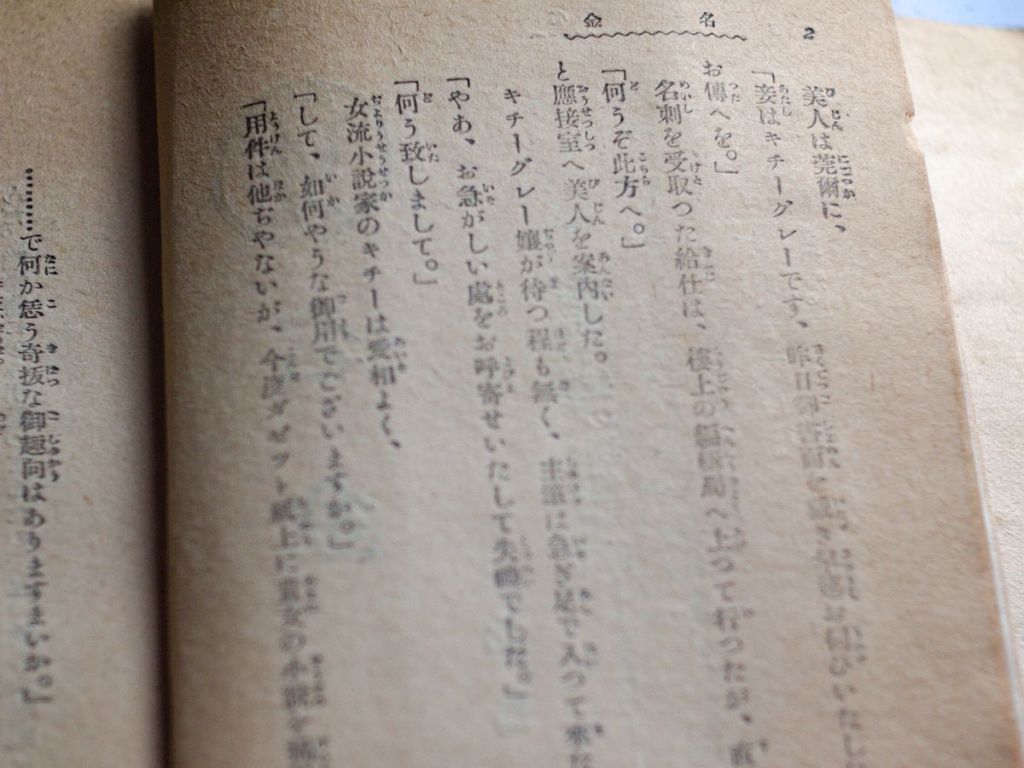 2
名金
美人は莞爾に、
「妾はキチーグレーです、昨日御書面を
お傳へを。」
名刺を受取つた給仕は、樓上の編輯局へ上つて行つたが、直
「何うぞ此方へ。」
と應接室へ美人を案内した。
キチーグレー孃が待つ程も無く、主筆は急ぎ足で入つて來た
「やあ、お急がしい處をお呼寄せいたして失禮でした。」
「何う致しまして。」
女流小説家のキチーは愛相よく、
「して、如何やうな御用でございますか。」
「用件は他ぢやないが、今度ガゼット紙上に貴女の小説を
………で何か恁う奇拔な御趣向はありますまいか。」